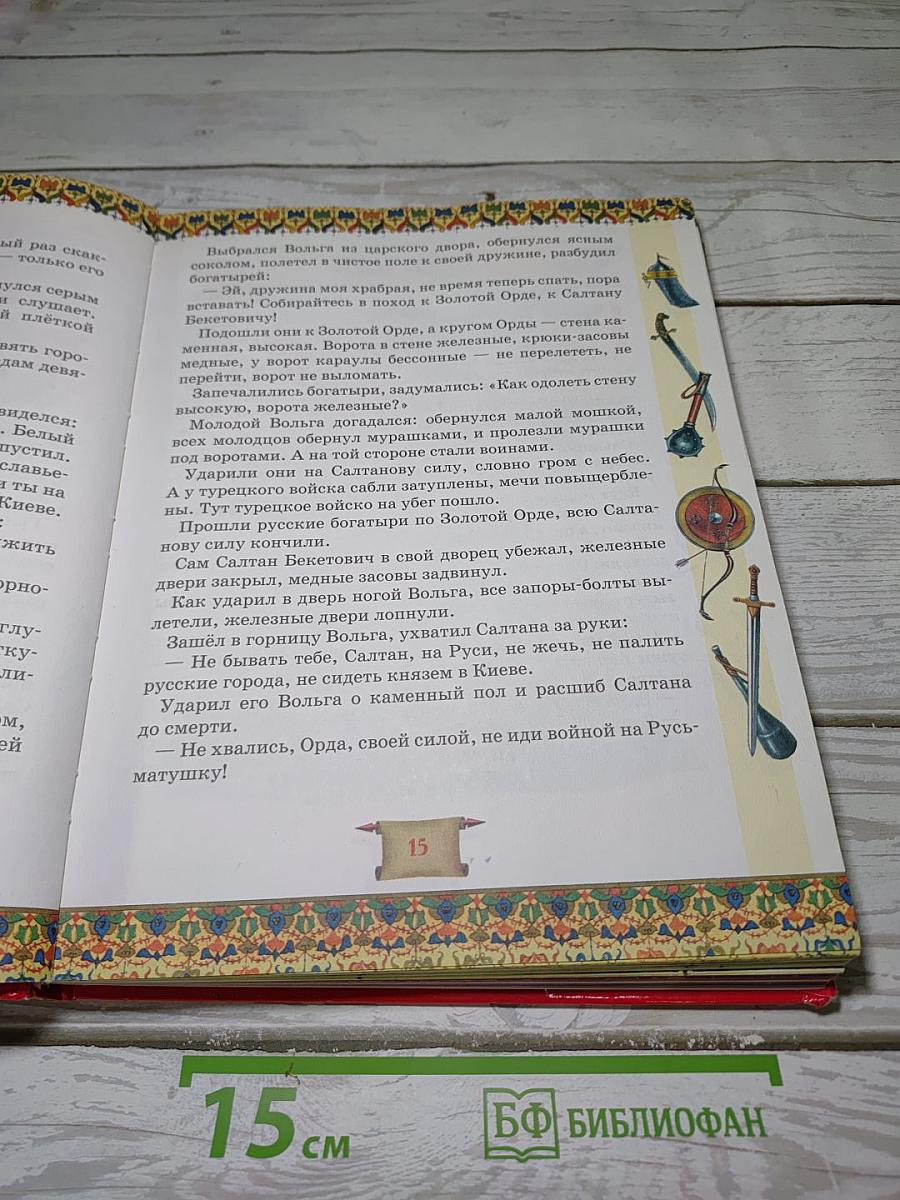 ый раз скак-
— только его
нулся серым
и слушает.
й плёткой
вять горо-
дам девя-
виделся:
. Белый
пустил.
славье-
и ты на
Киеве.
:
жить
орно-
глу-
тку-
ли-
ом,
ей
Выбрался Вольга из царского двора, обернулся ясным
соколом, полетел в чистое поле к своей дружине, разбудил
богатырей:
— Эй, дружина моя храбрая, не время теперь спать, пора
вставать! Собирайтесь в поход к Золотой Орде, к Салтану
Бекетовичу!
Подошли они к Золотой Орде, а кругом Орды — стена ка-
менная, высокая. Ворота в стене железные, крюки-засовы
медные, у ворот караулы бессонные — не перелететь, не
перейти, ворот не выломать.
Запечалились богатыри, задумались: «Как одолеть стену
высокую, ворота железные?»
Молодой Вольга догадался: обернулся малой мошкой,
всех молодцов обернул мурашками, и пролезли мурашки
под воротами. А на той стороне стали воинами.
Ударили они на Салтанову силу, словно гром с небес.
А у турецкого войска сабли затуплены, мечи повыщербле-
ны. Тут турецкое войско на убег пошло.
Прошли русские богатыри по Золотой Орде, всю Салта-
нову силу кончили.
Сам Салтан Бекетович в свой дворец убежал, железные
двери закрыл, медные засовы задвинул.
Как ударил в дверь ногой Вольга, все запоры-болты вы-
летели, железные двери лопнули.
Зашёл в горницу Вольга, ухватил Салтана за руки:
— Не бывать тебе, Салтан, на Руси, не жечь, не палить
русские города, не сидеть князем в Киеве.
Ударил его Вольга о каменный пол и расшиб Салтана
до смерти.
— Не хвались, Орда, своей силой, не иди войной на Русь-
матушку!
15
15 см
БФ БИБЛИОФАН